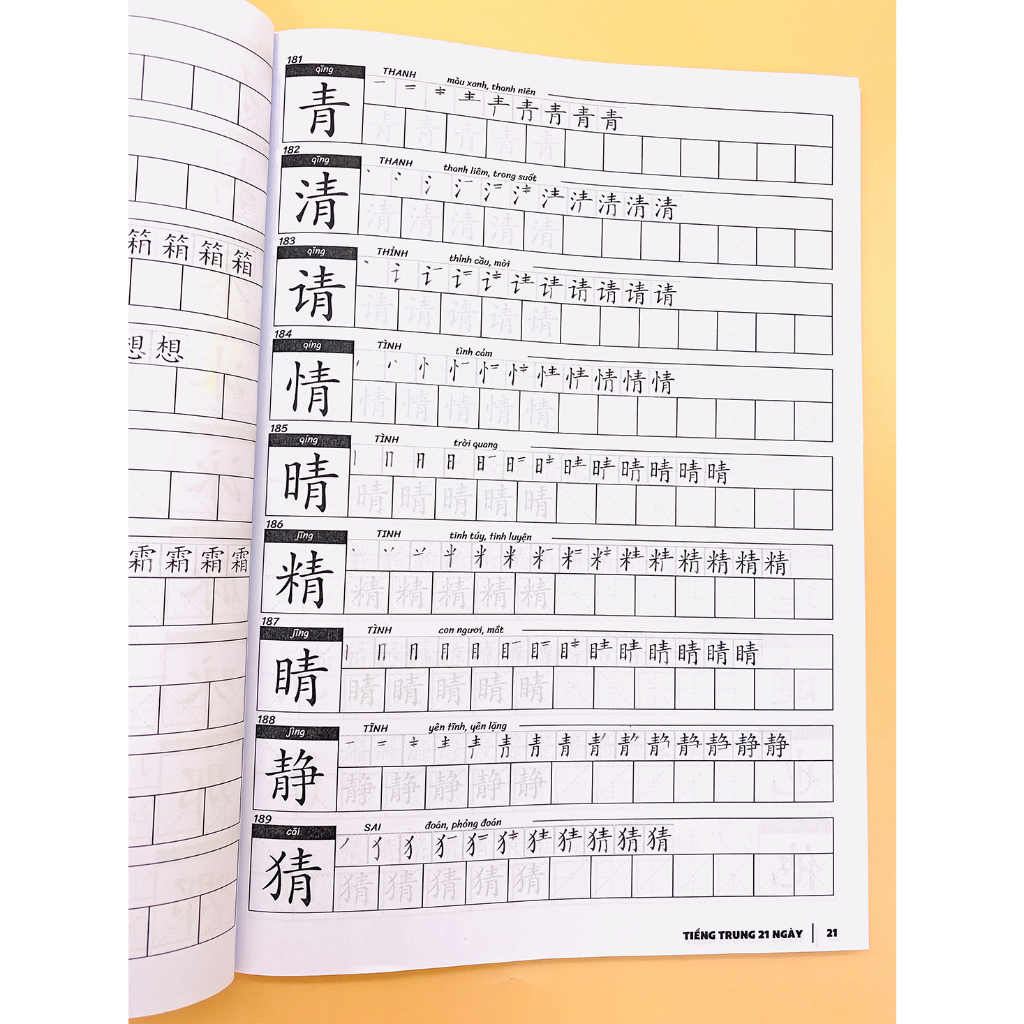 箱 箱 箱
想 想
181
qīng
青
THANH
màu xanh, thanh niên
青 青
青 青 青 青 青
182
qīng
清
THANH
thanh liêm, trong suốt
清
清 清 清 清 清
183
qǐng
请
THỈNH
thỉnh cầu, mời
请
请 请 请 请 请
184
qíng
情
TÌNH
tình cảm
情
情 情 情 情 情
185
qíng
晴
TÌNH
trời quang
晴
晴 晴 晴 晴 晴
186
jīng
精
TINH
tinh túy, tinh luyện
精
精 精 精 精 精
187
jīng
睛
TÌNH
con ngươi, mắt
睛
睛 睛 睛 睛 睛
188
jìng
静
TĨNH
yên tĩnh, yên lặng
静
静 静 静 静 静
189
cāi
猜
SAI
đoán, phỏng đoán
猜
猜 猜 猜 猜 猜
TIẾNG TRUNG 21 NGÀY | 21